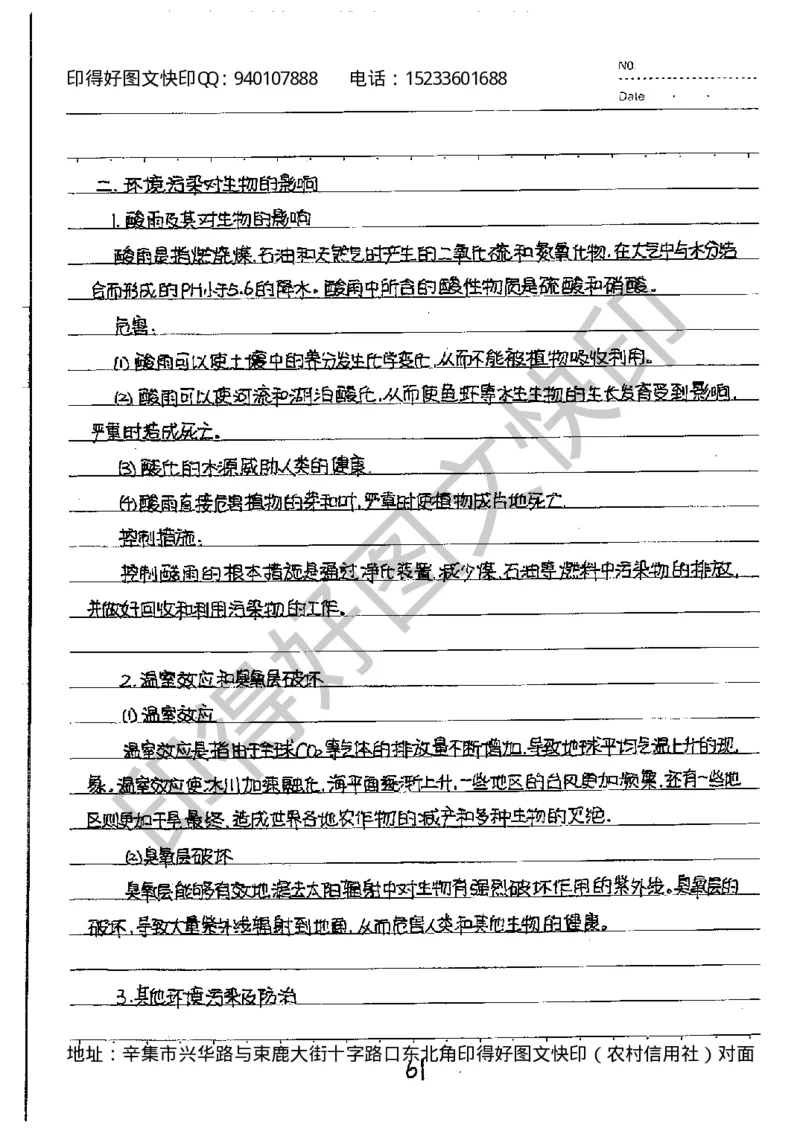 印得好图文快印QQ：940107888 电话：15233601688
NO.
Date
二.环境污染对生物的影响
1.酸雨及其对生物的影响
酸雨是指燃烧煤、石油和天然气时产生的二氧化硫和氮氧化物，在大气中与水分结
合而形成的PH小于5.6的降水。酸雨中所含的酸性物质是硫酸和硝酸。
危害：
(1)酸雨可以使土壤中的养分发生化学变化，从而不能被植物吸收利用。
(2)酸雨可以使河流和湖泊酸化，从而使鱼虾等水生生物的生长发育受到影响，
严重时造成死亡。
(3)酸化的水源威胁人类的健康.
(4)酸雨直接危害植物的芽和叶，严重时使植物成片地死亡.
控制措施：
控制酸雨的根本措施是通过净化装置，减少煤、石油等燃料中污染物的排放，
并做好回收和利用污染物的工作。
2.温室效应和臭氧层破坏
(1)温室效应
温室效应是指由于全球CO2等气体的排放量不断增加，导致地球平均气温上升的现
象。温室效应使冰川加速融化，海平面逐渐上升，一些地区的台风更加频繁，还有一些地
区则更加干旱.最终，造成世界各地农作物的减产和多种生物的灭绝.
(2)臭氧层破坏
臭氧层能够有效地滤去太阳辐射中对生物有强烈破坏作用的紫外线。臭氧层的
破坏，导致大量紫外线辐射到地面，从而危害人类和其他生物的健康。
3.其他环境污染及防治
地址：辛集市兴华路与束鹿大街十字路口东北角印得好图文快印（农村信用社）对面
61
印得好图文快印